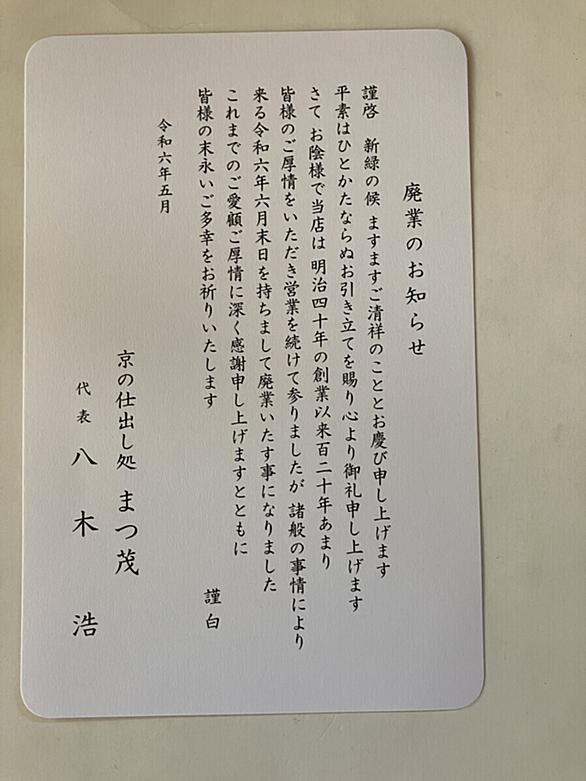 廃業のお知らせ
謹啓 新緑の候 ますますご清祥のこととお慶び申し上げます
平素はひとかたならぬお引き立てを賜り心より御礼申し上げます
さて お陰様で当店は 明治四十年の創業以来百二十年あまり
皆様のご厚情をいただき営業を続けて参りましたが 諸般の事情により
来る令和六年六月末日を持ちまして廃業いたす事になりました
これまでのご愛顧ご厚情に深く感謝申し上げますとともに
皆様の末永いご多幸をお祈りいたします
謹白
令和六年五月
京の仕出し処 まつ茂
代表 八木 浩